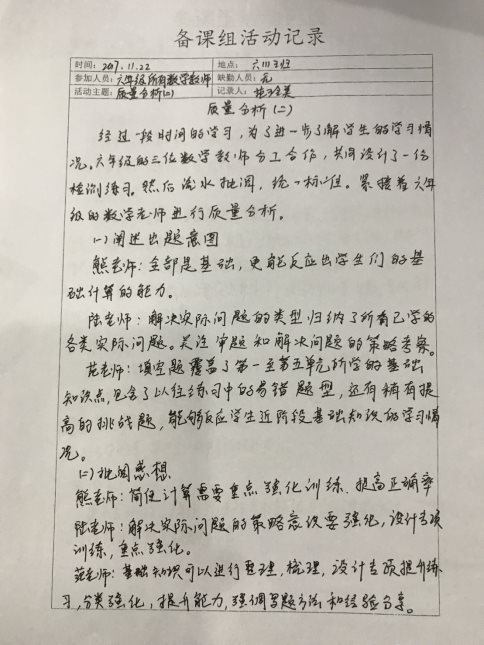 备课组活动记录
时间：2017.11.22 地点：六(1)班
参加人员：六年级所有数学教师 缺勤人员：无
活动主题：质量分析(二) 记录人：
质量分析（二）
经过一段时间的学习，为了进一步了解学生的学习情
况。六年级的三位数学教师分工合作，共同设计了一份
检测练习。然后流水批阅，统一标准。紧接着六年
级的数学老师进行质量分析。
(一)阐述出题意图
熊老师：全部是基础，更能反应出学生们的基
础计算的能力。
陆老师：解决实际问题的类型归纳了所有已学的
各类实际问题。关注审题和解决问题的策略考察。
范老师：填空题覆盖了第一至第五单元所学的基础
知识点，包含了以往练习中的易错题型，还有稍有提
高的挑战题，能够反应学生近阶段基础知识的学习情
况。
(二)批阅感想
熊老师：简便计算需要重点强化训练，提高正确率
陆老师：解决实际问题的策略意识要强化，设计专项
训练，重点强化。
范老师：基础知识可以进行整理，梳理，设计专项提升练
习，分类强化，提升能力，强调写题方法和经验分享。